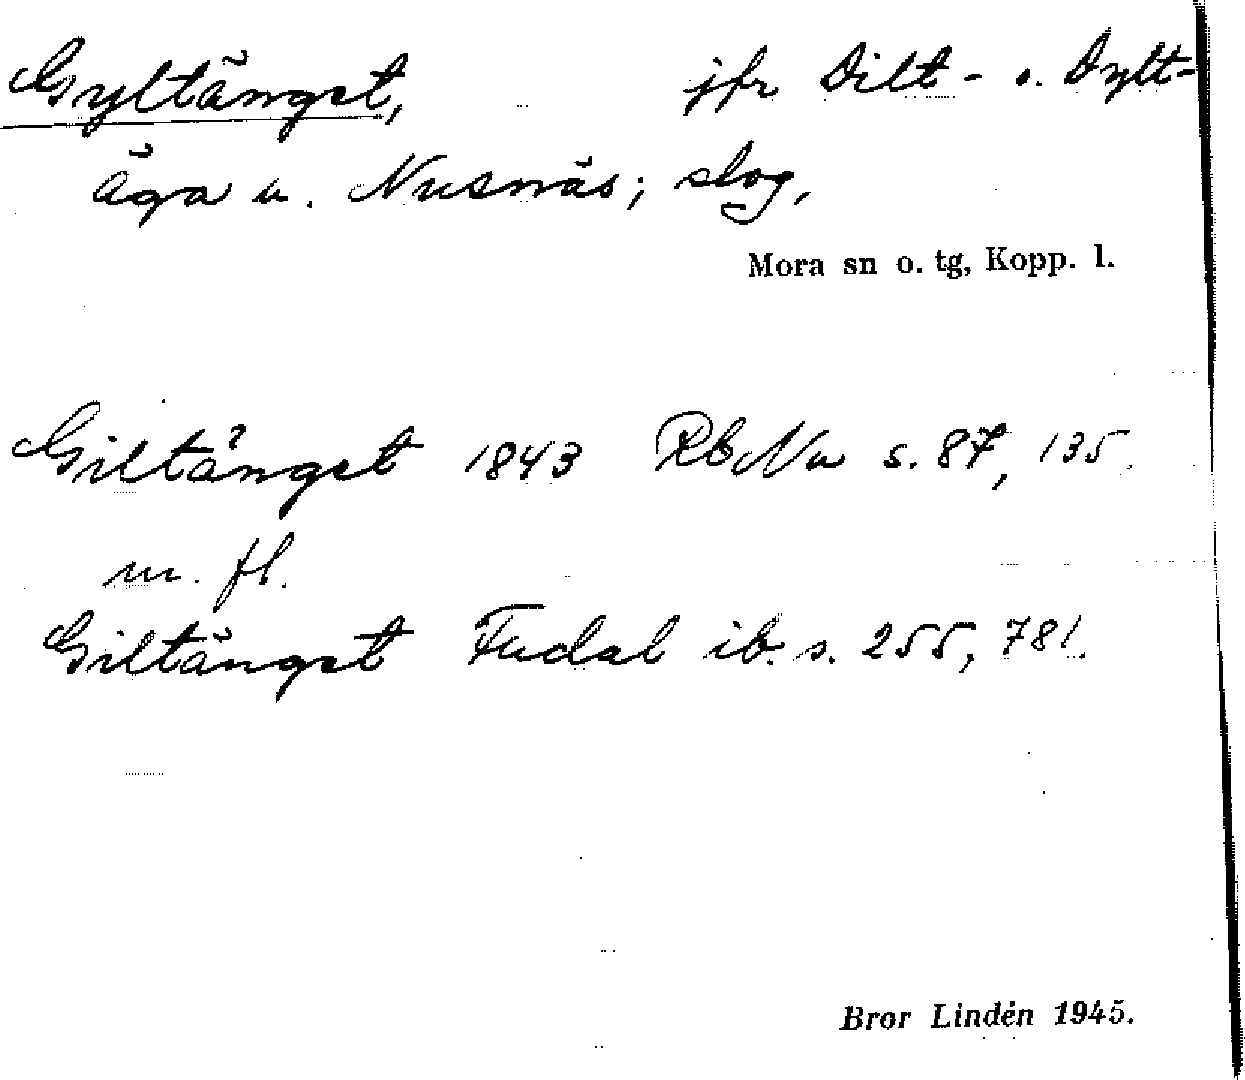 Gyltängst, jfr Dilt- o. Dylt-
Äga u. Nusnäs; slog,
Mora sn o. tg, Kopp. l.
Giltängst 1843 RbNu s. 87, 135
m. fl.
Giltängst Fudal ib. s. 255, 781.
Bror Lindén 1945.